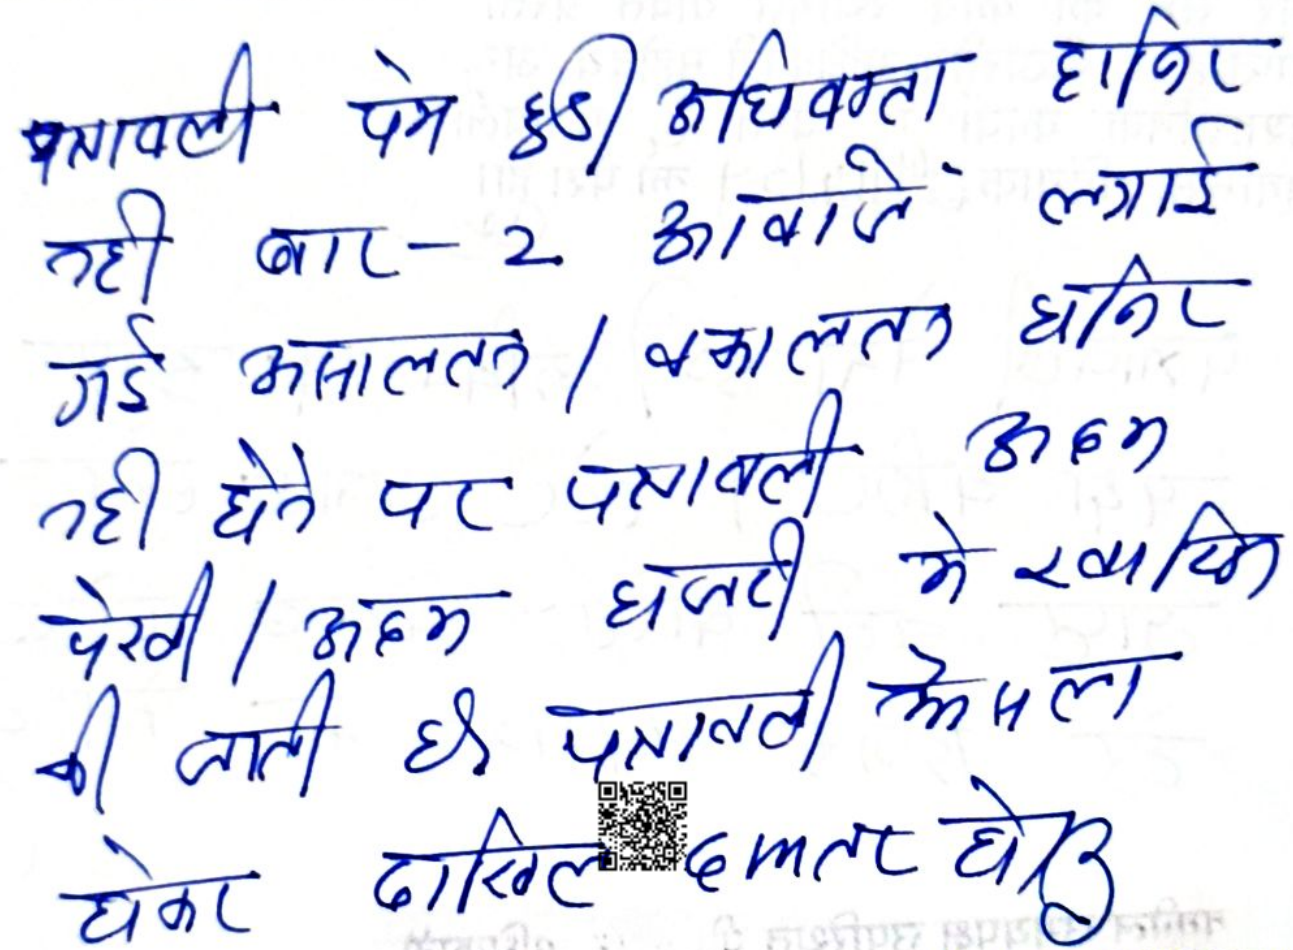 पत्रावली पेश हुई अधिवक्ता हाजिर
नही बार-2 आवाजे लगाई
गई असालतन / वकालतन हाजिर
नही होने पर पत्रावली अदम
पेरवी / अदम हाजरी मे खारिज
की जाती है पत्रावली फैसला
होकर दाखिल दफ्तर हो